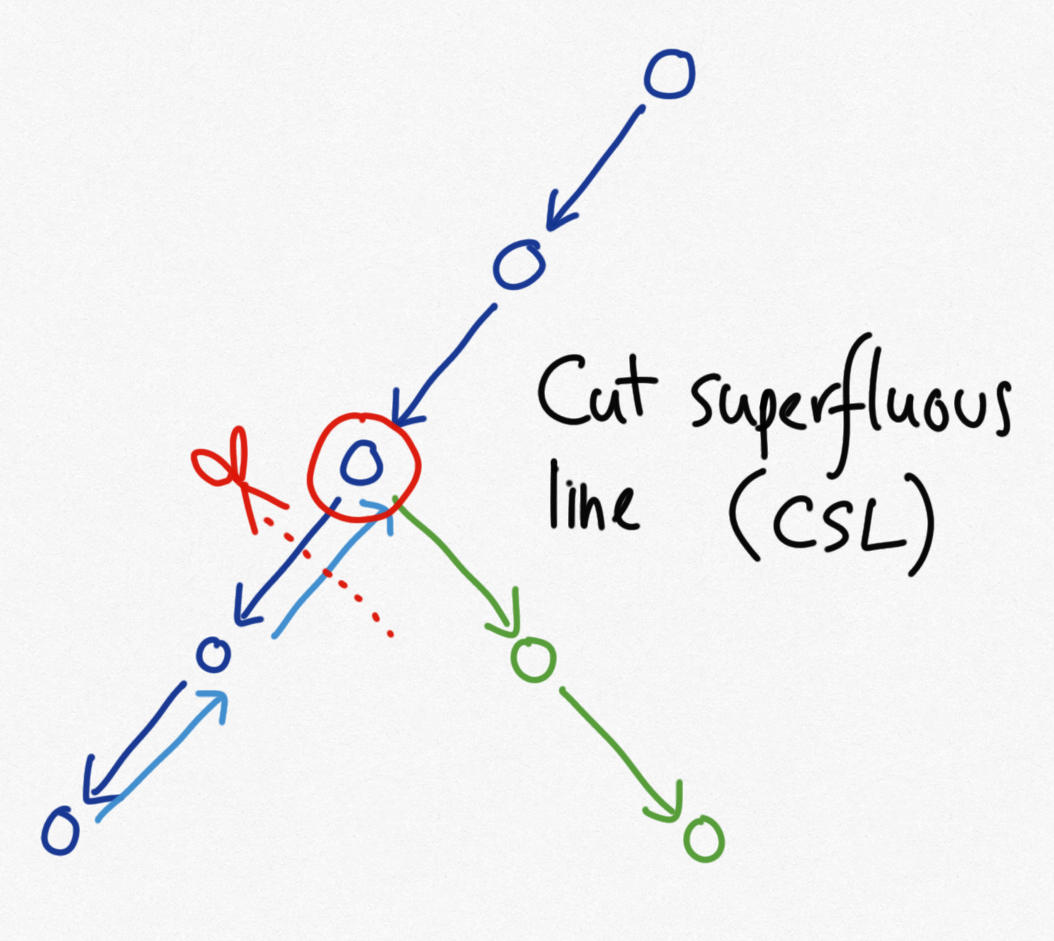 Cut superfluous
line (CSL)